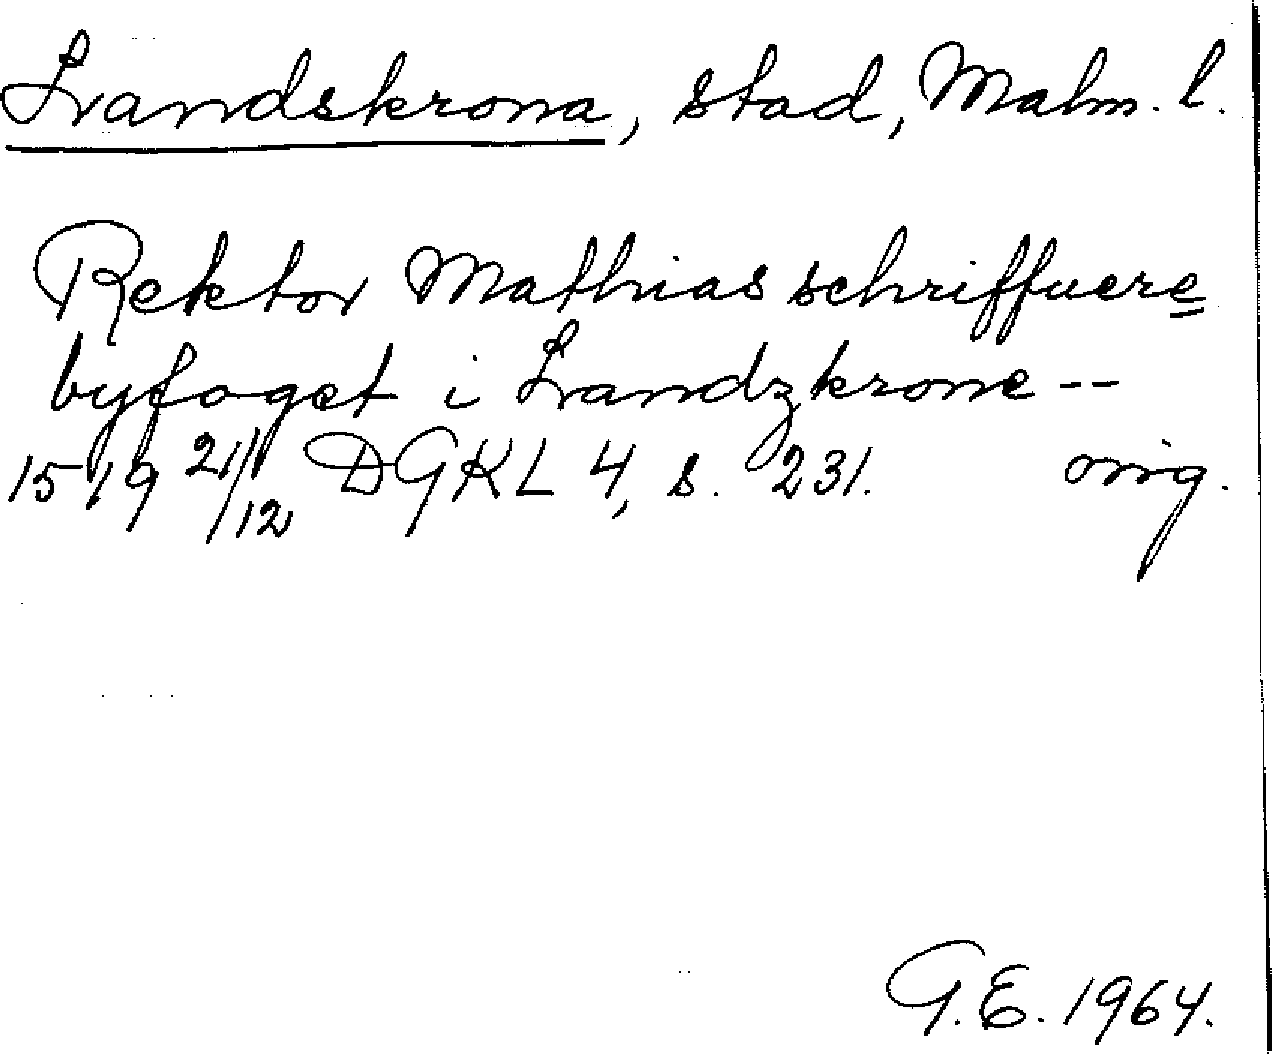 Landskrona, stad, Malm. l.
Rektor Mathias schriffuere
byfoget i Landzkrone --
1519 21/12 DGKL 4, s. 231. orig.
G.E. 1964.